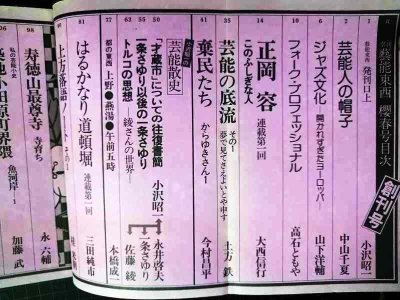 藝能東西 櫻春号目次
創刊号
1 藝能東西 発刊口上 小沢昭一
2 芸能人の帽子 中山千夏
6 ジャズ文化 開かれすぎたヨーロッパ 山下洋輔
10 フォーク・プロフェッショナル 高石ともや
14 正岡容 連載第一回 大西信行
このふしぎな人
31 芸能の底流 その1 土方鉄
夢で見てさえよいとや申す
41 棄民たち からゆきさん1 今村昌平
芸能散史
50 「才蔵市」についての往復書簡 小沢昭一 永井啓夫
63 一条さゆり以後の一条さゆり 一条さゆり
74 トルコの思想 (絹さんの世界) 佐藤綾
77 都の東西 上野●燕湯●午前五時 本橋成一
81 はるかなり道頓堀 連載第一回 三田純市
上方落語ノート その1
95 私の芸能小史
寿徳山最尊寺 寺育ち 永六輔
98
築地小田原町界隈 魚河岸1 加藤武